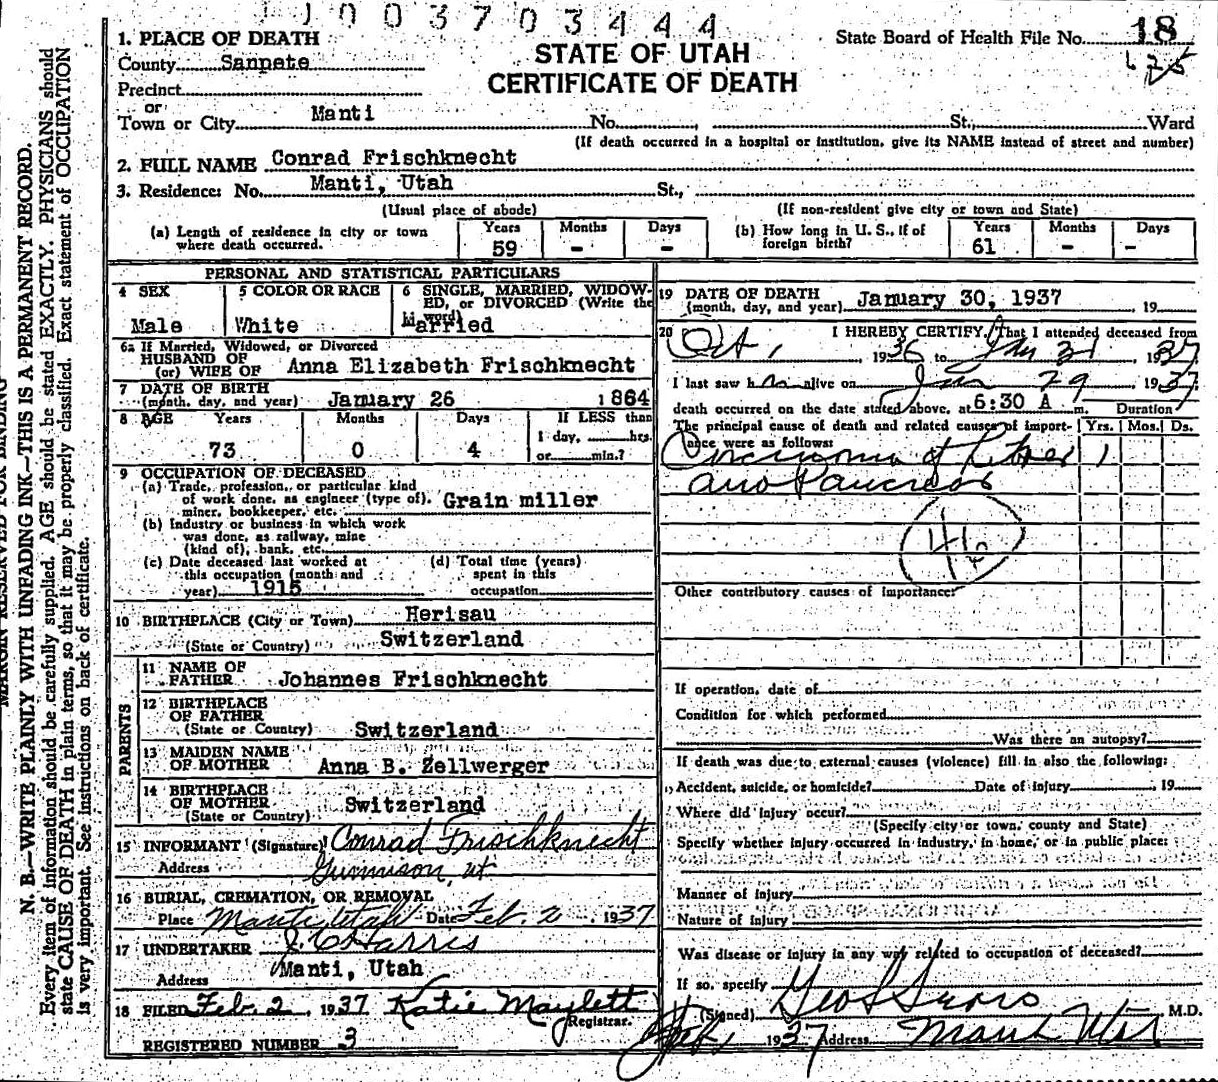 1 1 0 0 3 7 0 3 4 4 4
1. PLACE OF DEATH
County Sanpete
Precinct
or
Town or City Manti No. St., Ward
STATE OF UTAH
CERTIFICATE OF DEATH
State Board of Health File No. 18
(If death occurred in a hospital or institution, give its NAME instead of street and number)
2. FULL NAME Conrad Frischknecht
3. Residence: No. Manti, Utah St.,
(Usual place of abode) (If non-resident give city or town and State)
(a) Length of residence in city or town where death occurred. Years 59 Months - Days -
(b) How long in U. S., if of foreign birth? Years 61 Months - Days -
PERSONAL AND STATISTICAL PARTICULARS
4 SEX Male
5 COLOR OR RACE White
6 SINGLE, MARRIED, WIDOWED, or DIVORCED (Write the word) Married
6a If Married, Widowed, or Divorced
HUSBAND OF
(or) WIFE OF Anna Elizabeth Frischknecht
7 DATE OF BIRTH
(month, day, and year) January 26 1864
8 AGE Years 73 Months 0 Days 4 If LESS than
1 day, hrs.
or min.?
9 OCCUPATION OF DECEASED
(a) Trade, profession, or particular kind
of work done, as engineer (type of),
miner, bookkeeper, etc. Grain miller
(b) Industry or business in which work
was done, as railway, mine
(kind of), bank, etc.
(c) Date deceased last worked at
this occupation (month and
year) 1915
(d) Total time (years)
spent in this
occupation
10 BIRTHPLACE (City or Town) Herisau
(State or Country) Switzerland
PARENTS
11 NAME OF
FATHER Johannes Frischknecht
12 BIRTHPLACE
OF FATHER
(State or Country) Switzerland
13 MAIDEN NAME
OF MOTHER Anna B. Zellwerger
14 BIRTHPLACE
OF MOTHER
(State or Country) Switzerland
15 INFORMANT (Signature) Conrad Frischknecht
Address Gunnison, Ut
16 BURIAL, CREMATION, OR REMOVAL
Place Manti Utah Date Feb. 2, 1937
17 UNDERTAKER J. C. Harris
Address Manti, Utah
18 FILED Feb. 2, 1937 Katie Maylett
Registrar.
REGISTERED NUMBER 3
19 DATE OF DEATH
(month, day, and year) January 30, 1937 19
20 I HEREBY CERTIFY, That I attended deceased from
Oct, 1936 to Jan 31, 1937
I last saw him alive on Jan 29, 1937
death occurred on the date stated above, at 6:30 A m. Duration
The principal cause of death and related causes of importance were as follows: Yrs. Mos. Ds.
Carcinoma of Liver 1
and Pancreas
Other contributory causes of importance:
If operation, date of
Condition for which performed
Was there an autopsy?
If death was due to external causes (violence) fill in also the following:
Accident, suicide, or homicide? Date of injury , 19
Where did injury occur?
(Specify city or town, county and State)
Specify whether injury occurred in industry, in home, or in public place:
Manner of injury
Nature of Injury
Was disease or injury in any way related to occupation of deceased?
If so, specify
(Signed) M.D.
1937 Address Manti Utah
N. B.—WRITE PLAINLY WITH UNFADING INK—THIS IS A PERMANENT RECORD.
Every item of information should be carefully supplied. AGE should be stated EXACTLY. PHYSICIANS should
state CAUSE OF DEATH in plain terms, so that it may be properly classified. Exact statement of OCCUPATION
is very important. See instructions on back of certificate.